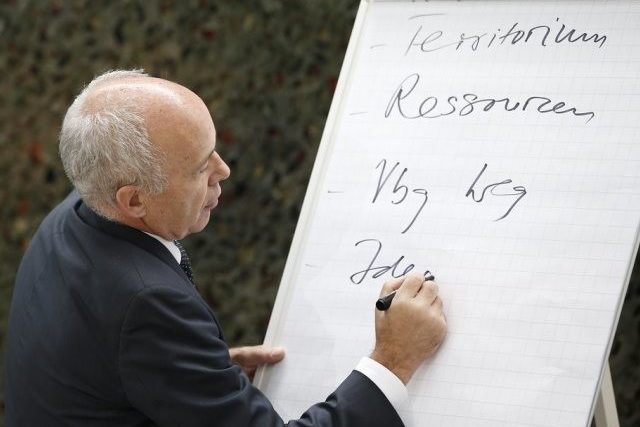 - Territorium
- Ressourcen
- Vbg Weg
- Ide